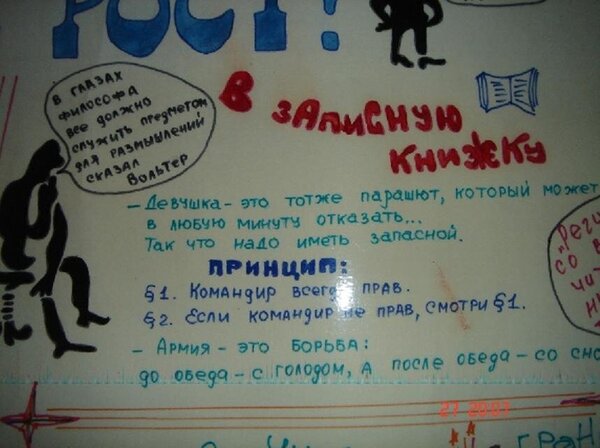 РОСТ!
В ГЛАЗАХ
ФИЛОСОФА
ВСЕ ДОЛЖНО
СЛУЖИТЬ ПРЕДМЕТОМ
ДЛЯ РАЗМЫШЛЕНИЙ
СКАЗАЛ
ВОЛЬТЕР
В ЗАПИСНУЮ
КНИЖКУ
- ДЕВУШКА - ЭТО ТОТЖЕ ПАРАШЮТ, КОТОРЫЙ МОЖЕТ
В ЛЮБУЮ МИНУТУ ОТКАЗАТЬ...
ТАК ЧТО НАДО ИМЕТЬ ЗАПАСНОЙ.
ПРИНЦИП:
§1. КОМАНДИР ВСЕГДА ПРАВ.
§2. ЕСЛИ КОМАНДИР НЕ ПРАВ, СМОТРИ §1.
- АРМИЯ - ЭТО БОРЬБА:
ДО ОБЕДА - С ГОЛОДОМ, А ПОСЛЕ ОБЕДА - СО СНО